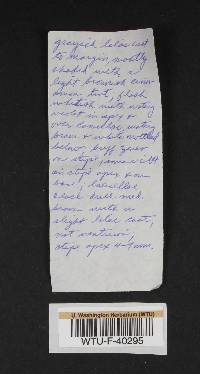 grayish lilac cast
to margin, mostly
shaded with a
light brownish cinn-
amon tint, flesh
whitish with watery
in apex &
over lamellae, watery
brown & white mottled
below, buff zones
on stipe,
in stipe apex &
base; lamellae
dull med.
brown with a
slight lilac cast;
not
stipe apex 4-7 mm.
U. Washington Herbarium (WTU)
WTU-F-40295